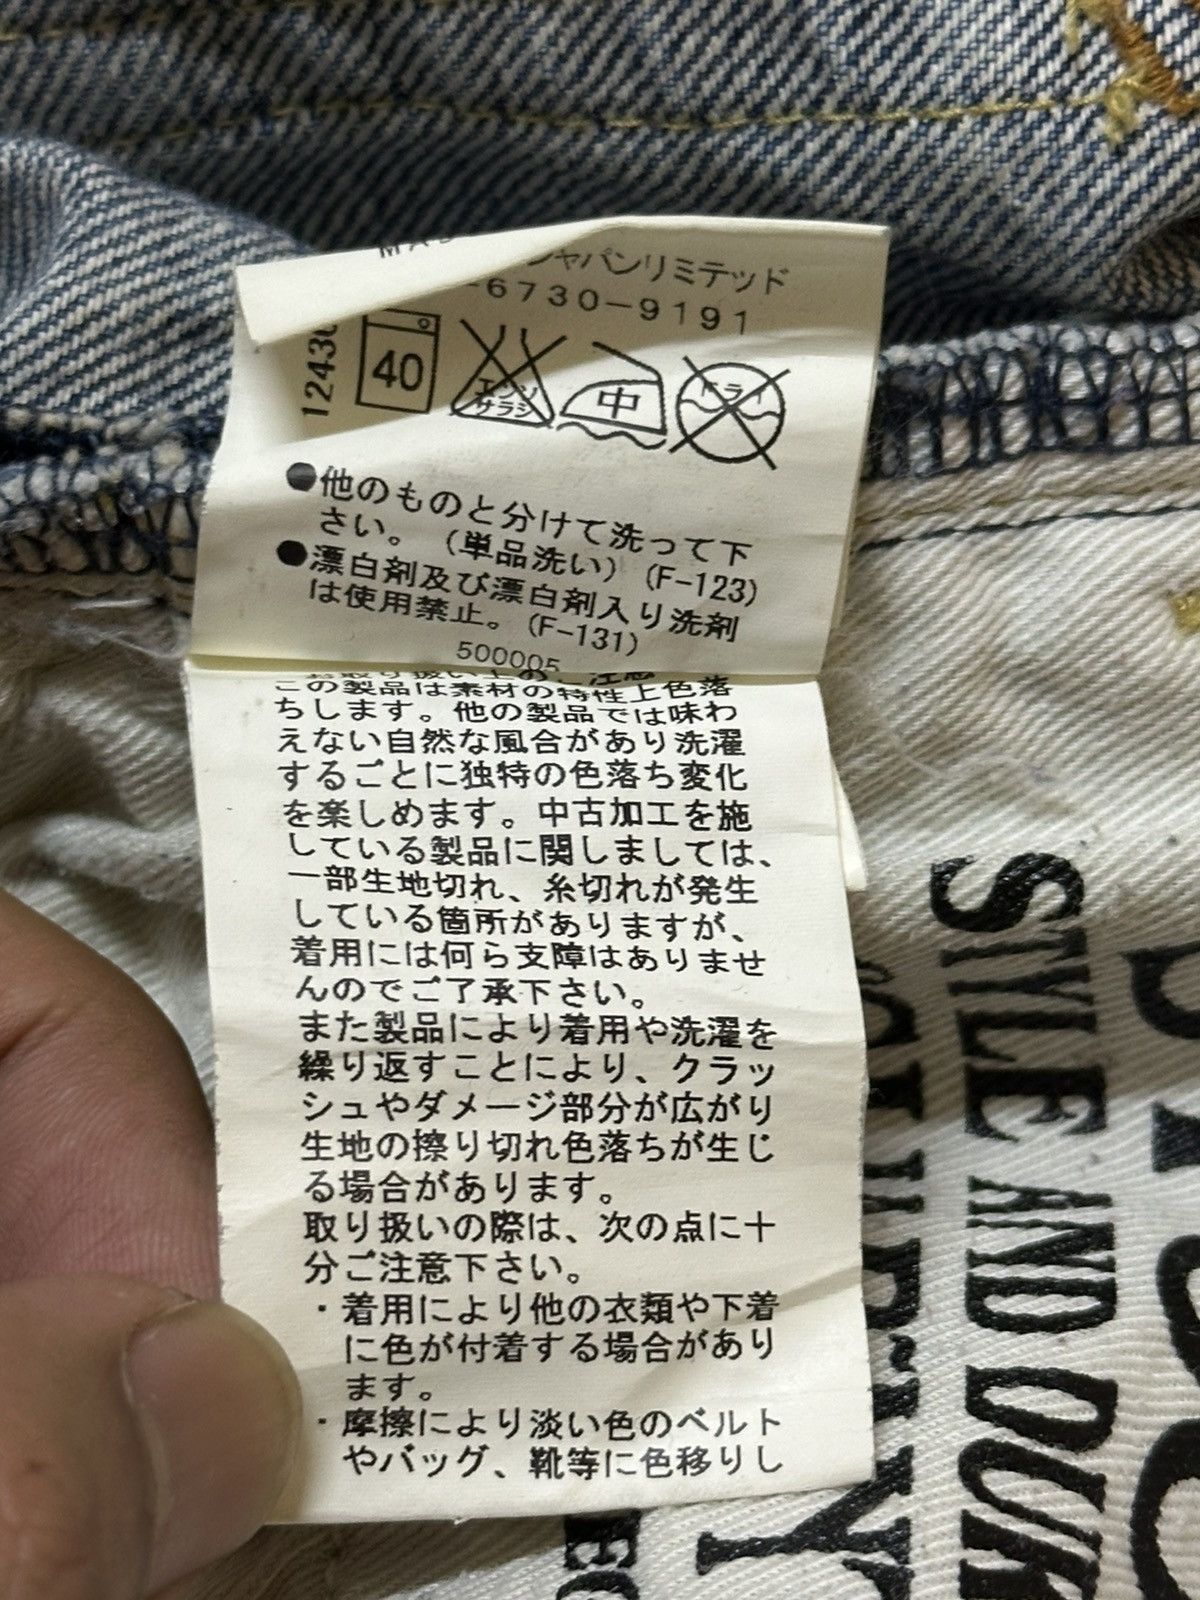 ャパンリミテッド
-6730-9191
40
エンソ
サラシ
中
ドライ
●他のものと分けて洗って下
さい。(単品洗い)(F-123)
●漂白剤及び漂白剤入り洗剤
は使用禁止。(F-131)
500005
この製品は素材の特性上色落
ちします。他の製品では味わ
えない自然な風合があり洗濯
するごとに独特の色落ち変化
を楽しめます。中古加工を施
している製品に関しましては、
一部生地切れ、糸切れが発生
している箇所がありますが、
着用には何ら支障はありませ
んのでご了承下さい。
また製品により着用や洗濯を
繰り返すことにより、クラッ
シュやダメージ部分が広がり
生地の擦り切れ色落ちが生じ
る場合があります。
取り扱いの際は、次の点に十
分ご注意下さい。
・着用により他の衣類や下着
に色が付着する場合があり
ます。
・摩擦により淡い色のベルト
やバッグ、靴等に色移りし
STYLE AND DUR